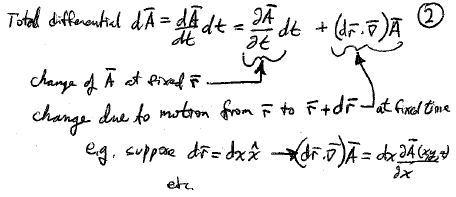 Total differential dA̅ = dA̅/dt dt = ∂A̅/∂t dt + (dr̅·∇̅)A̅ ②
change of A̅ at fixed r̅
change due to motion from r̅ to r̅+dr̅ at fixed time
e.g. suppose dr̅ = dx x̂ → (dr̅·∇̅)A̅ = dx ∂A̅(xyzt)/∂x
etc.